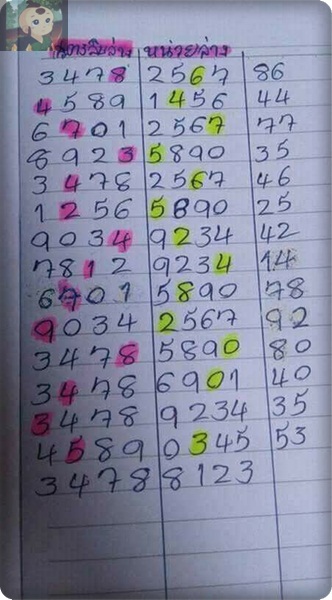 สิบล่าง หน่วยล่าง
3478 2567 86
4589 1456 44
6701 2567 77
8923 5890 35
3478 2567 46
1256 5890 25
9034 9234 42
7812 9234 14
6701 5890 78
9034 2567 92
3478 5890 80
3478 6901 40
3478 9234 35
4589 0345 53
3478 8123